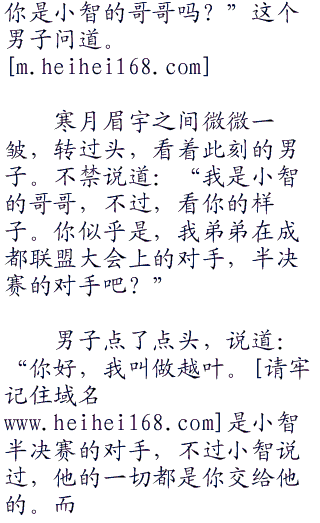 你是小智的哥哥吗？”这个
男子问道。
[m.heihei168.com]
寒月眉宇之间微微一
皱，转过头，看着此刻的男
子。不禁说道：“我是小智
的哥哥，不过，看你的样
子。你似乎是，我弟弟在成
都联盟大会上的对手，半决
赛的对手吧？”
男子点了点头，说道：
“你好，我叫做越叶。[请牢
记住域名
www.heihei168.com]是小智
半决赛的对手，不过小智说
过，他的一切都是你交给他
的。而